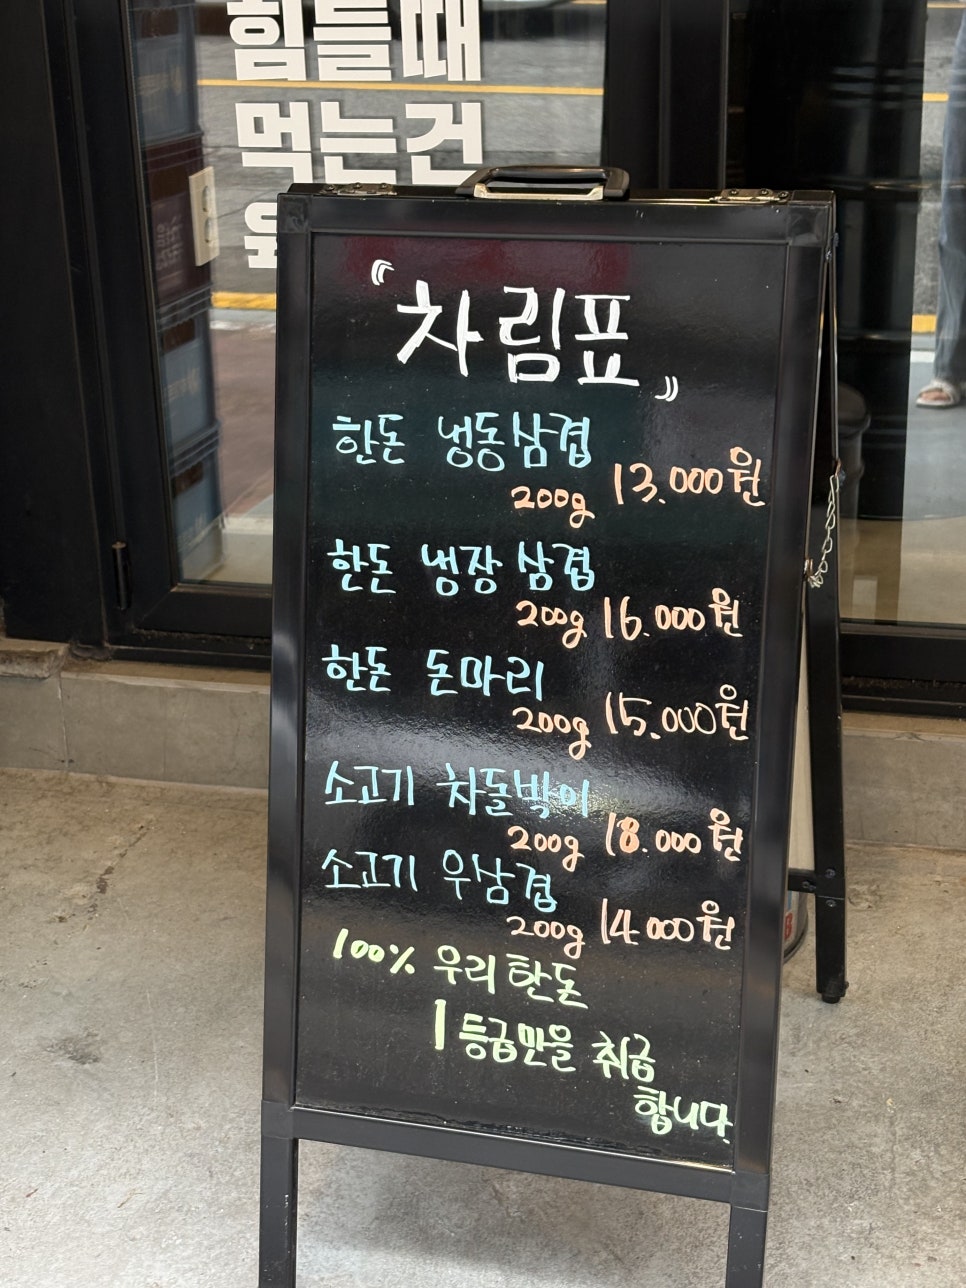 힘들때
먹는건
『차림표』
한돈 냉동삼겹
200g 13.000원
한돈 냉장 삼겹
200g 16.000원
한돈 돈마리
200g 15.000원
소고기 차돌박이
200g 18.000원
소고기 우삼겹
200g 14.000원
100% 우리 한돈
1등급만을 취급
합니다.